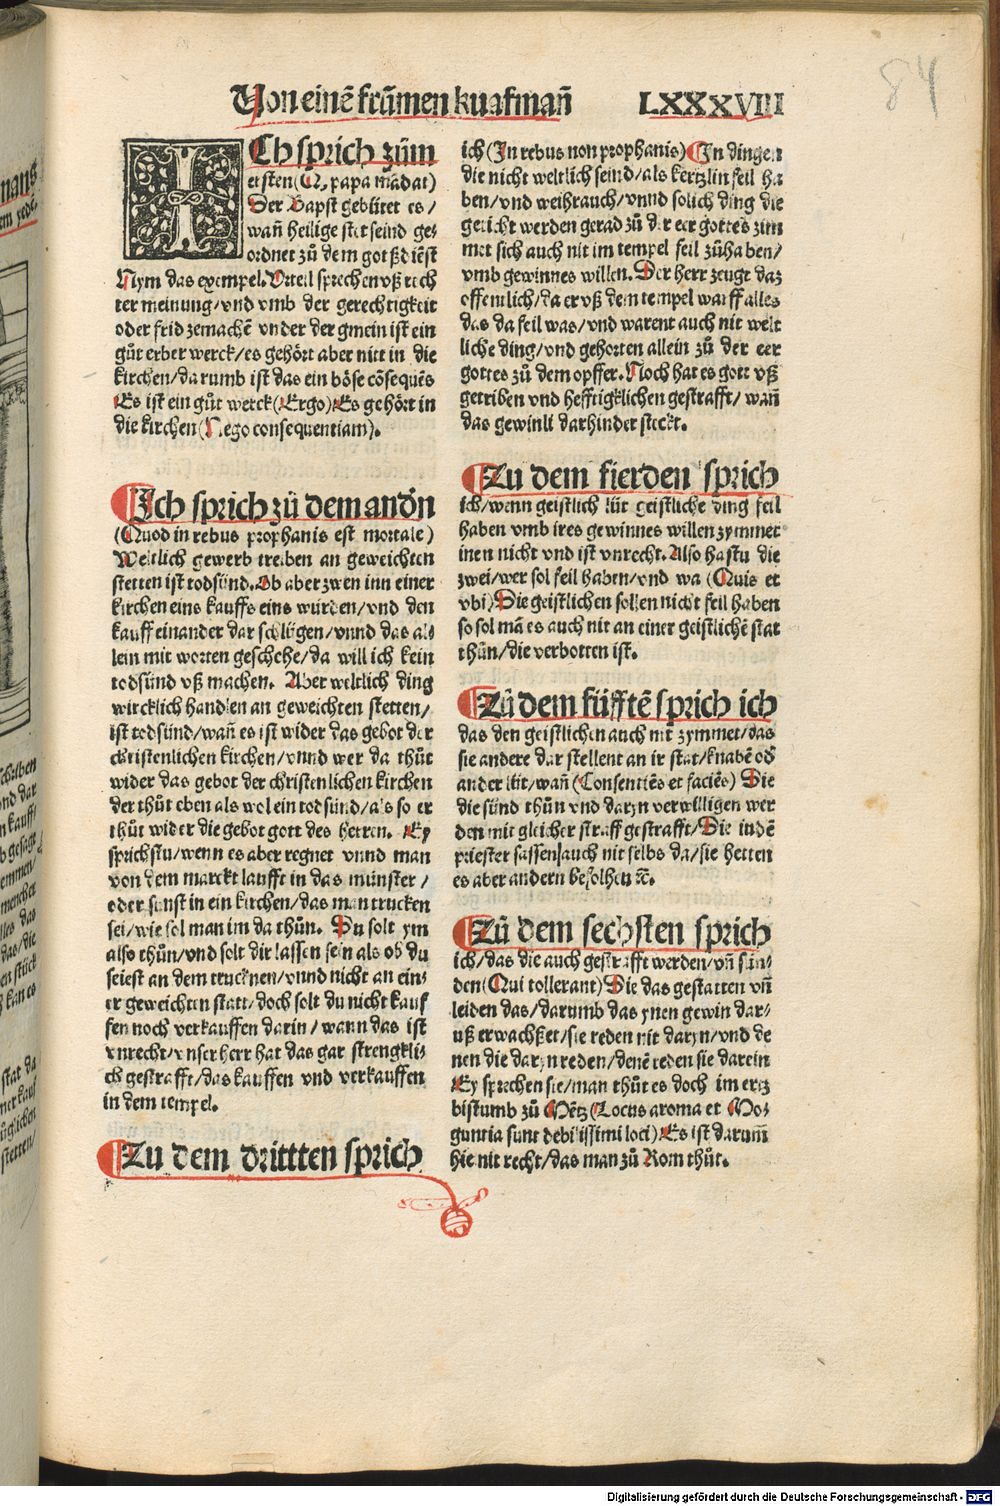 Von einẽ frũmen kuafmañ LXXXVIII
84
ICh sprich zům
ersten (Q, papa mãdat)
Der Bapst gebütet es /
wañ heilige stet seind ge⸗
ordnet zů dem got ßdiẽst
Nym das exempel. Vrteil sprechen vß rech
ter meinung / vnd vmb der gerechtigkeit
oder frid zemachẽ vnder der gmein ist ein
gůt erber werck / es gehört aber nitt in die
kirchen / darumb ist das ein böse cõsequẽs
Es ist ein gůt werck (Ergo) Es gehört in
die kirchen (Nego consequentiam).
Ich sprich zů dem andn̄
(Quod in rebus prophanis est mortale)
Weltlich gewerb treiben an geweichten
stetten ist todsünd. Ob aber zwen inn einer
kirchen eins kauffs eins würden / vnd den
kauff einander dar schlügen / vnnd das al⸗
lein mit worten geschehe / da will ich kein
todsünd vß machen. Aber weltlich ding
wircklich handlen an geweichten stetten /
ist todsünd / wañ es ist wider das gebot der
christenlichen kirchen / vnnd wer da thůt
wider das gebot der christenlichen kirchen
der thůt eben als wol ein todsünd / als so er
thůt wider die gebot gott des herren. Ey
sprichstu / wenn es aber regnet vnnd man
von dem marckt laufft in das münster /
oder sunst in ein kirchen / das man trucken
sei / wie sol man im da thůn. Du solt ym
also thůn / vnd solt dir lassen sein als ob du
seiest an dem trucknen / vnnd nicht an ein⸗
er geweichten statt / doch solt du nicht kauf
fen noch verkauffen darin / wann das ist
vnrecht / vnser herr hat das gar strengkli⸗
ch gestrafft / das kauffen vnd verkauffen
in dem tempel.
Zu dem drittten sprich
ich (In rebus non prophanis) In dingen
die nicht weltlich seind / als kertzlin feil ha
ben / vnd weihrauch / vnnd solich ding die
gericht werden gerad zů der eer gottes zim
met sich auch nit im tempel feil zůhaben /
vmb gewinnes willen. Der herr zeugt daz
offentlich / da er vß dem tempel warff alles
das da feil was / vnd warent auch nit welt
liche ding / vnd gehorten allein zů der eer
gottes zů dem opffer. Noch hat es gott vß
getriben vnd hefftigklichen gestrafft / wañ
das gewinli darhinder steckt.
Zu dem fierden sprich
ich / wenn geistlich lüt geistliche ding feil
haben vmb ires gewinnes willen zymmet
inen nicht vnd ist vnrecht. Also hastu die
zwei / wer sol feil haben / vnd wa (Quis et
vbi) Die geistlichen sollen nicht feil haben
so sol mã es auch nit an einer geistlichẽ stat
thůn / die verbotten ist.
Zů dem füfftẽ sprich ich
das den geistlichen auch nit zymmet / das
sie andere dar stellent an ir stat / knabẽ od
ander lüt / wañ (Consentiẽs et faciẽs) Die
die sünd thůn vnd daryn verwilligen wer
den mit gleicher straff gestrafft / Die iudẽ
priester sassen auch nit selbs da / sie hetten
es aber andern befolhen ꝛc̃.
Zů dem sechsten sprich
ich / das die auch gestrafft werden / vñ sün⸗
den (Qui tollerant) Die das gestatten vñ
leiden das / darumb das ynen gewin dar⸗
uß erwachßet / sie reden nit daryn / vnd de
nen die daryn reden / denẽ reden sie darein
Ey sprechen sie / man thůt es doch im ertz
bistumb zů Mẽtz (Locus aroma et Mog⸗
guntia sunt debilissimi loci) Es ist darum̃
hie nit recht / das man zů Rom thůt.
Digitalisierung gefördert durch die Deutsche Forschungsgemeinschaft - DFG